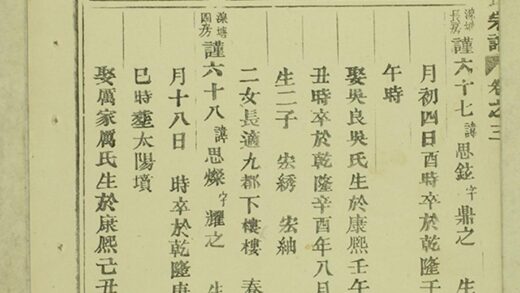 宗譜 卷之三
溪塘長房 謹六十七 諱思鉉 字鼎之 生
月初四日酉時卒於乾隆壬
午時
娶吳良吳氏生於康熙壬午
丑時卒於乾隆辛酉年八月
生二子 宏綉 宏紬
二女長適九都下樓樓 春
溪塘四房 謹六十八 諱思燦 字耀之 生
月十八日 時卒於乾隆庚
巳時塟太陽墳
娶厲家厲氏生於康熙己丑